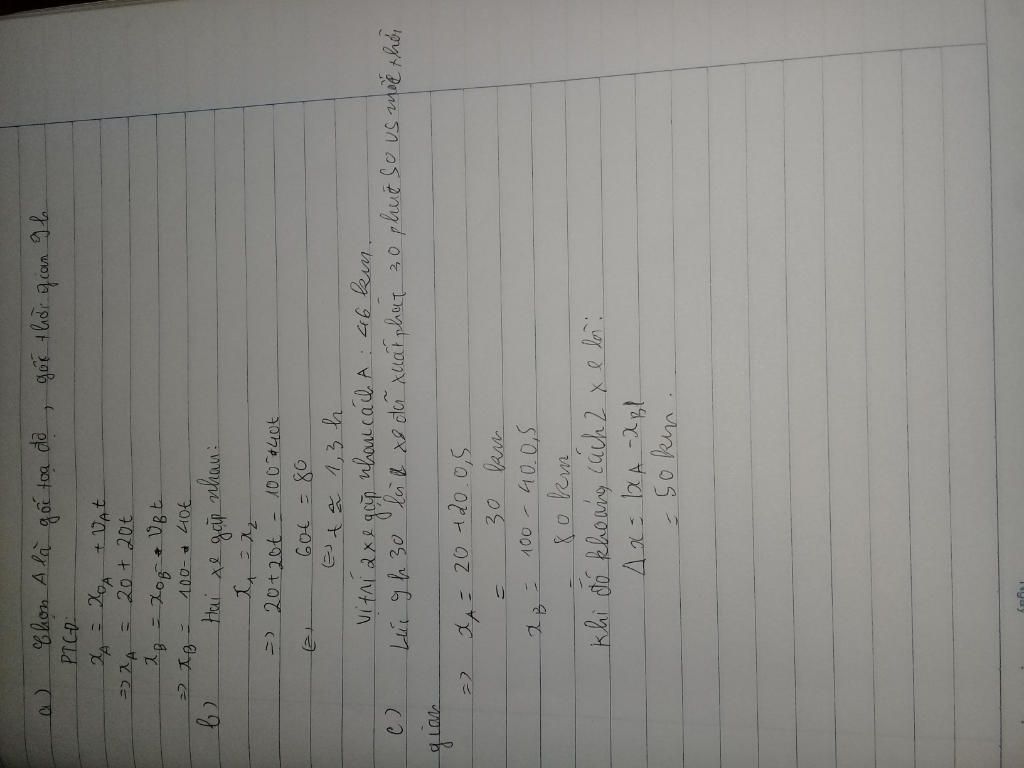 a) Chọn A là gốc toạ độ, gốc thời gian 9h
PTCĐ:
x_A = x_{0A} + v_A t
=> x_A = 20 + 20t
x_B = x_{0B} - v_B t
=> x_B = 100 - 40t
b) Hai xe gặp nhau:
x_1 = x_2
=> 20+20t = 100-40t
(=) 60t = 80
(=) t ≈ 1,3 h
Vị trí 2 xe gặp nhau cách A: 46 km.
c) Lúc 9h30 là xe đã xuất phát 30 phút so vs mốc thời
gian
=> x_A = 20 +20.0,5
= 30 km
x_B = 100 - 40.0,5
= 80 km
Khi đó khoảng cách 2 xe là:
Δx = |x_A - x_B|
= 50 km.